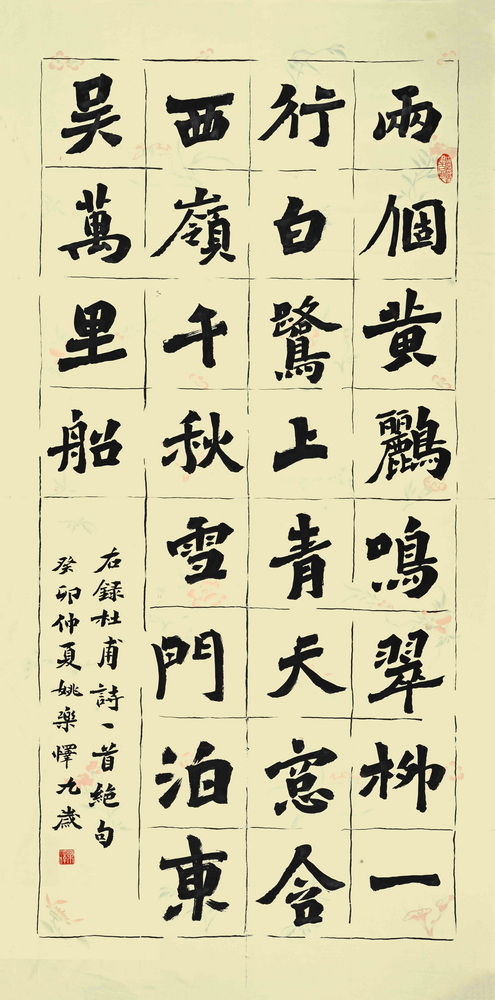 兩個黃鸝鳴翠柳一
行白鷺上青天窓含
西嶺千秋雪門泊東
吴萬里船
右録杜甫詩一首絕句
癸卯仲夏姚樂懌九歲